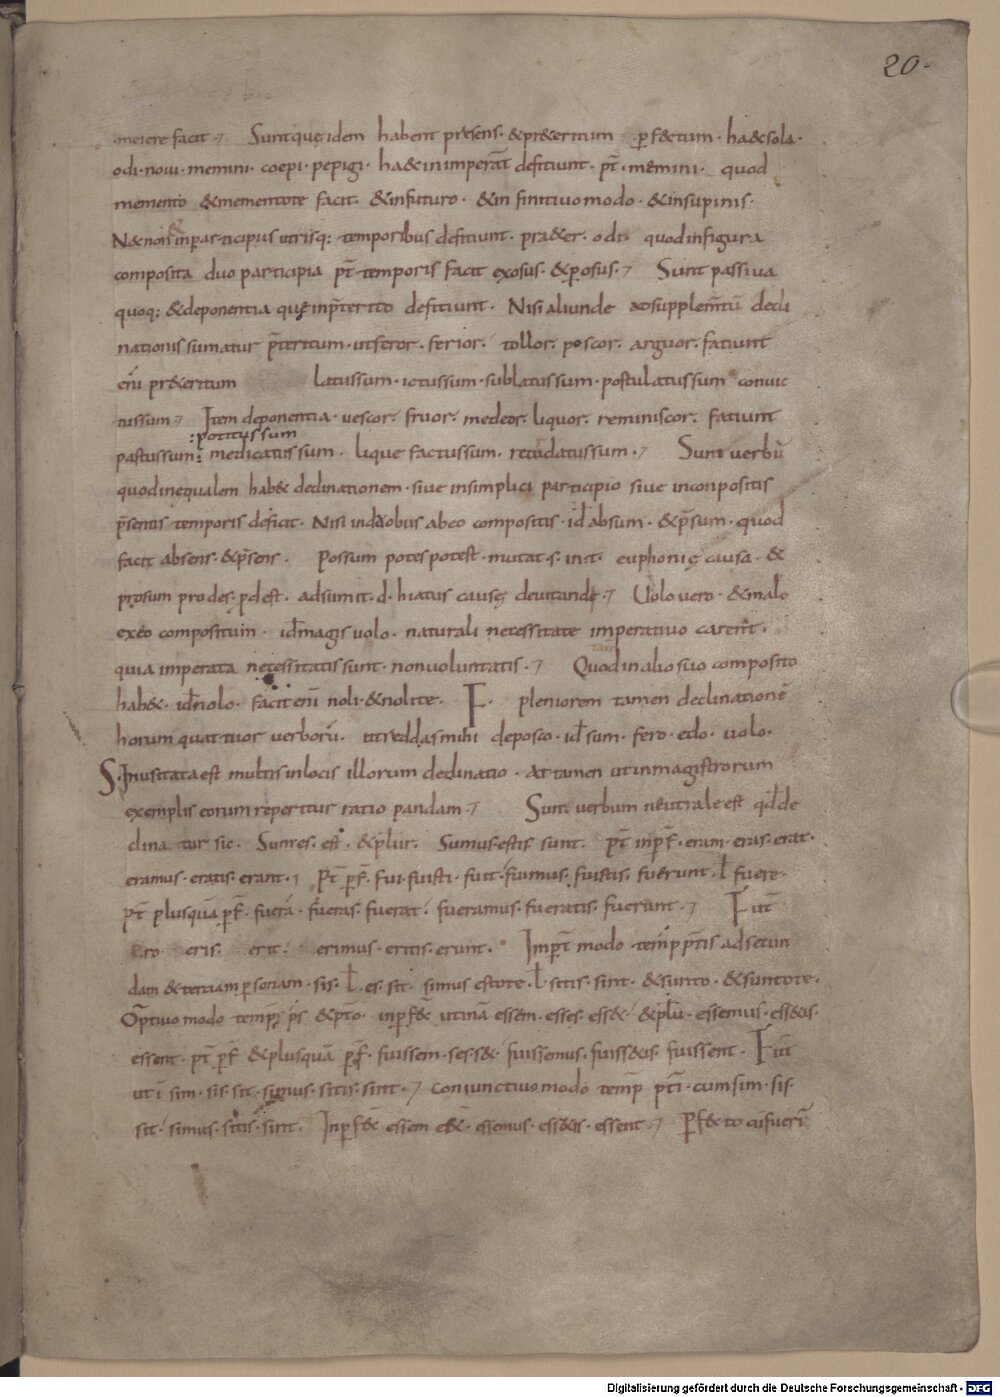 20.
meiere facit · Suntquę idem habent presens · &pr&eritum perf&ctum · ha&csola ·
odi · novi · memini · coepi · pepigi · ha&cinimperat̄ defitiunt · pt̄ · memini · quod
memento &mementote facit · &infuturo · &in finitivo modo · &insupinis ·
N&cnon &inparticipiis utrisq; temporibus defitiunt · pr&&er · odi quodinfigura
composita duo participia pt̄ temporis facit exosus · &perosus · Sunt passiva
quoq; &deponentia quę inp̄terito defitiunt · Nisi aliunde adsupplem̄tū decli
nationis sumatur p̄teritum · utferor · ferior · tollor · poscor · arguor · fatiunt
enī pr&eritum latussum · ictussum · sublatussum · postulatussum convic
tussum · Item deponentia · vescor · fruor · medeor · liquor · reminiscor · fatiunt
:potitussum
pastussum: medicatussum · lique factussum · recordatussum · Sunt verbū
quodinęqualem hab& declinationem · sive insimplici participio sive inconpositis
p̄sentis temporis deficit · Nisi induobus abeo compositis · id ē absum · &p̄sum · quod
facit absens · &p̄sens · Possum potes potest · mutat · f · in · t · euphonię causa · &
prosum prodes · pdest · adsumit · d · hiatus causę devitandę · Volo vero · &malo
exeo compositum · id ē magis volo · naturali necessitate imperativo carent ·
quia imperata necessitatis sunt · non voluntatis · Quod in alio suo composito
hab& · id ē nolo · facit enī noli · &nolite · F · pleniorem tamen declinationē
horum quattuor verborū · utreddas mihi deposco · id ē sum · fero · edo · volo ·
S · Inusitata est multis in locis illorum declinatio · Attamen ut in magistrorum
exemplis eorum reperitur ratio pandam · Sum verbum neutrale est qd de
clinatur sic · Sum es · est · &plur · Sumus · estis sunt · pt̄ inpf · eram · eras · erat ·
eramus · eratis · erant · Pt̄ pf · fui · fuisti · fuit · fuimus · fuistis · fuerunt · ł fuere ·
pt̄ plusquā pf · fuerā · fueras · fuerat · fueramus · fueratis · fuerant · Fut̄
Ero eris · erit · erimus · eritis · erunt · Impt̄ modo temp p̄tis ad secun
dam &tertiam personam · sis · ł · es · sit · simus estote · ł · sitis · sint · &sunto · &suntote ·
Optivo modo temps ps &pto · inpf& utinā essem · esses · ess& · &plu · essemus · ess&is ·
essent · pt̄ pf &plusquā pf · fuissem · ses · s& · fuissemus · fuiss&is · fuissent · Fut̄
uti sim · sis · sit · simus · sitis · sint · Coniunctivo modo temp pti · cum sim · sis ·
sit · simus · sitis · sint · Inpf& essem ess& · essemus · ess&is · essent · Pf&to cūfuerī
Digitalisierung gefördert durch die Deutsche Forschungsgemeinschaft - DFG